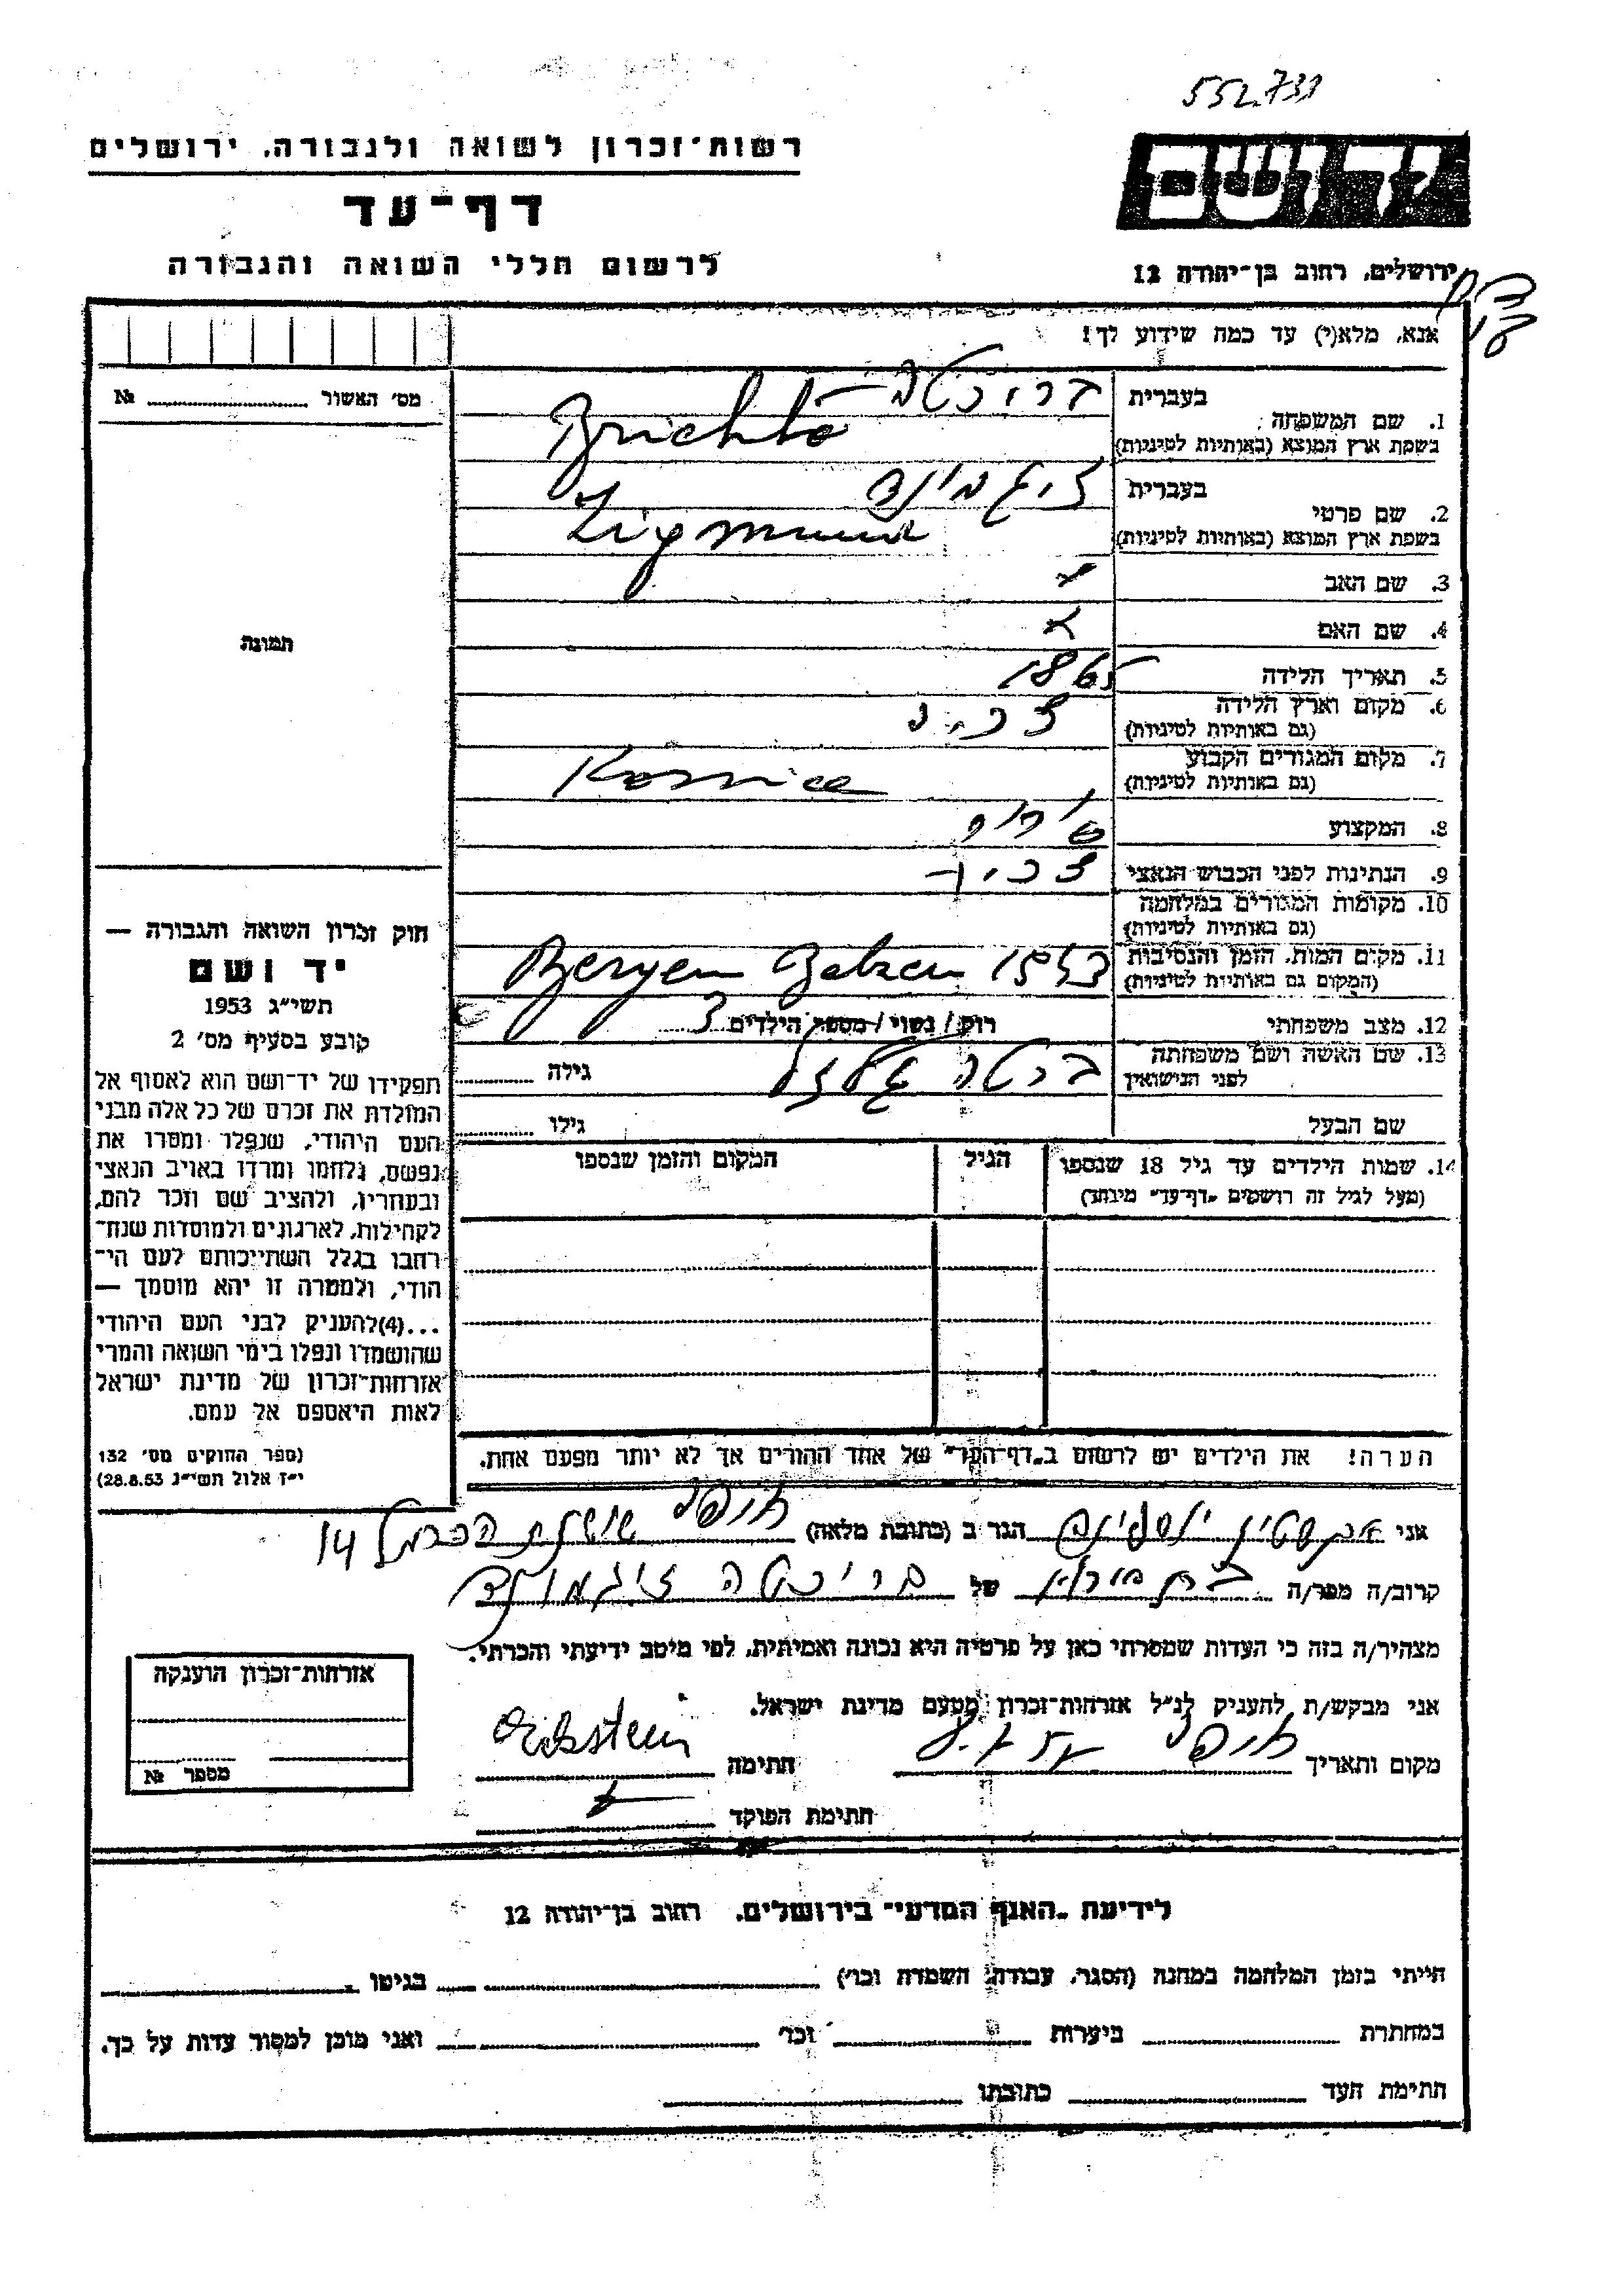 552.731
רשות־זכרון לשואה ולגבורה. ירושלים
דף־עד
לרשום חללי השואה והגבורה
ידושם
ירושלים. רחוב בן־יהודה 12
אנא. מלא(י) עד כמה שידוע לך!
מס׳ האשור № 
תמונה
בעברית
1. שם המשפחה
בשפת ארץ המוצא (באותיות לטיניות) Brichta
בעברית זיגמונד
2. שם פרטי
בשפת ארץ המוצא (באותיות לטיניות) Zigmund
3. שם האב
4. שם האם
5. תאריך הלידה 1865
6. מקום וארץ הלידה
(גם באותיות לטיניות)
7. מקום המגורים הקבוע
(גם באותיות לטיניות)
8. המקצוע
9. הנתינות לפני הכבוש הנאצי
10. מקומות המגורים במלחמה
(גם באותיות לטיניות)
11. מקום המות. הזמן והנסיבות Bergen Belzen
(המקום גם באותיות לטיניות)
12. מצב משפחתי רוק / נשוי / מספר הילדים 3
13. שם האשה ושם משפחתה ברטה
לפני הנישואין גילה
שם הבעל גילו
14. שמות הילדים עד גיל 18 שנספו הגיל המקום והזמן שנספו
(מעל לגיל זה רושמים „דף־עד” מיוחד)
הערה! את הילדים יש לרשום ב„דף־העד” של אחד ההורים אך לא יותר מפעם אחת.
חוק זכרון השואה והגבורה —
יד ושם
תשי״ג 1953
קובע בסעיף מס׳ 2
תפקידו של יד־ושם הוא לאסוף אל
המולדת את זכרם של כל אלה מבני
העם היהודי. שנפלו ומסרו את
נפשם, נלחמו ומרדו באויב הנאצי
ובעוזריו, ולהציב שם וזכר להם,
לקהילות, לארגונים ולמוסדות שנח־
רבו בגלל השתייכותם לעם הי־
הודי, ולמטרה זו יהא מוסמך —
...(4)להעניק לבני העם היהודי
שהושמדו ונפלו בימי השואה והמרי
אזרחות־זכרון של מדינת ישראל
לאות היאספם אל עמם.
(ספר החוקים מס׳ 132
י״ז אלול תשי״ג 28.8.53)
אני הגר ב (כתובת מלאה) חיפה הכרמל 14
קרוב/ה מפר/ה של בריכטה זיגמונד
מצהיר/ה בזה כי העדות שמסרתי כאן על פרטיה היא נכונה ואמיתית, לפי מיטב ידיעתי והכרתי.
אני מבקש/ת להעניק לנ״ל אזרחות־זכרון מטעם מדינת ישראל.
מקום ותאריך חיפה חתימה
חתימת הפוקד
אזרחות־זכרון הוענקה
מספר №
לידיעת „האגף המדעי” בירושלים. רחוב בן־יהודה 12
הייתי בזמן המלחמה במחנה (הסגר, עבודה, השמדה וכו׳) בגיטו
במחתרת ביערות וכו׳ ואני מוכן למסור עדות על כך.
חתימת העד כתובתו